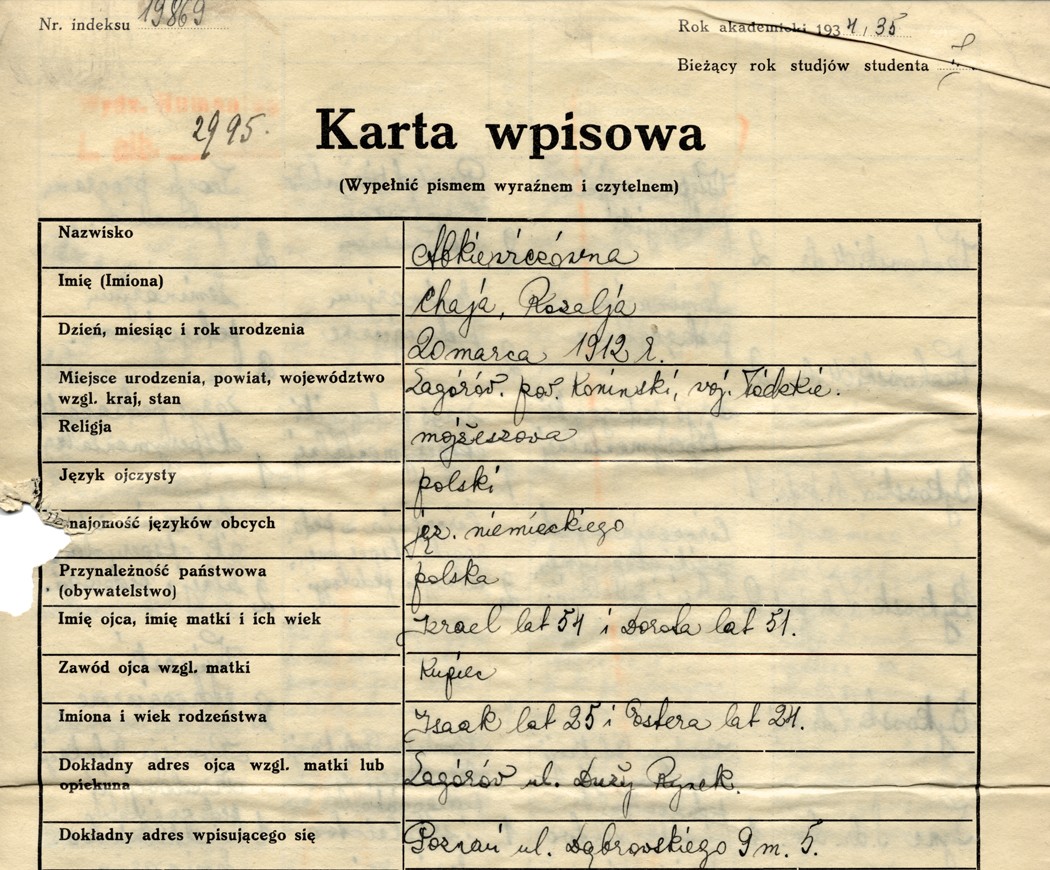 Nr. indeksu 19869
Rok akademicki 1934/35
Bieżący rok studjów studenta
Wydz. Humanist.
2995.
Karta wpisowa
(Wypełnić pismem wyraźnem i czytelnem)
Nazwisko Abkiewiczówna
Imię (Imiona) Chaja, Rozalja
Dzień, miesiąc i rok urodzenia 20 marca 1912 r.
Miejsce urodzenia, powiat, województwo
wzgl. kraj, stan Zagórów. pow. Koninski, woj. Łódzkie.
Religja mojżeszowa
Język ojczysty polski
najomość języków obcych jęz. niemieckiego
Przynależność państwowa
(obywatelstwo) polska
Imię ojca, imię matki i ich wiek Izrael lat 54 i Dorota lat 51.
Zawód ojca wzgl. matki Kupiec
Imiona i wiek rodzeństwa Isaak lat 25 i Estera lat 24.
Dokładny adres ojca wzgl. matki lub
opiekuna Zagórów ul. Duży Rynek.
Dokładny adres wpisującego się Poznań ul. Dąbrowskiego 9 m. 5.